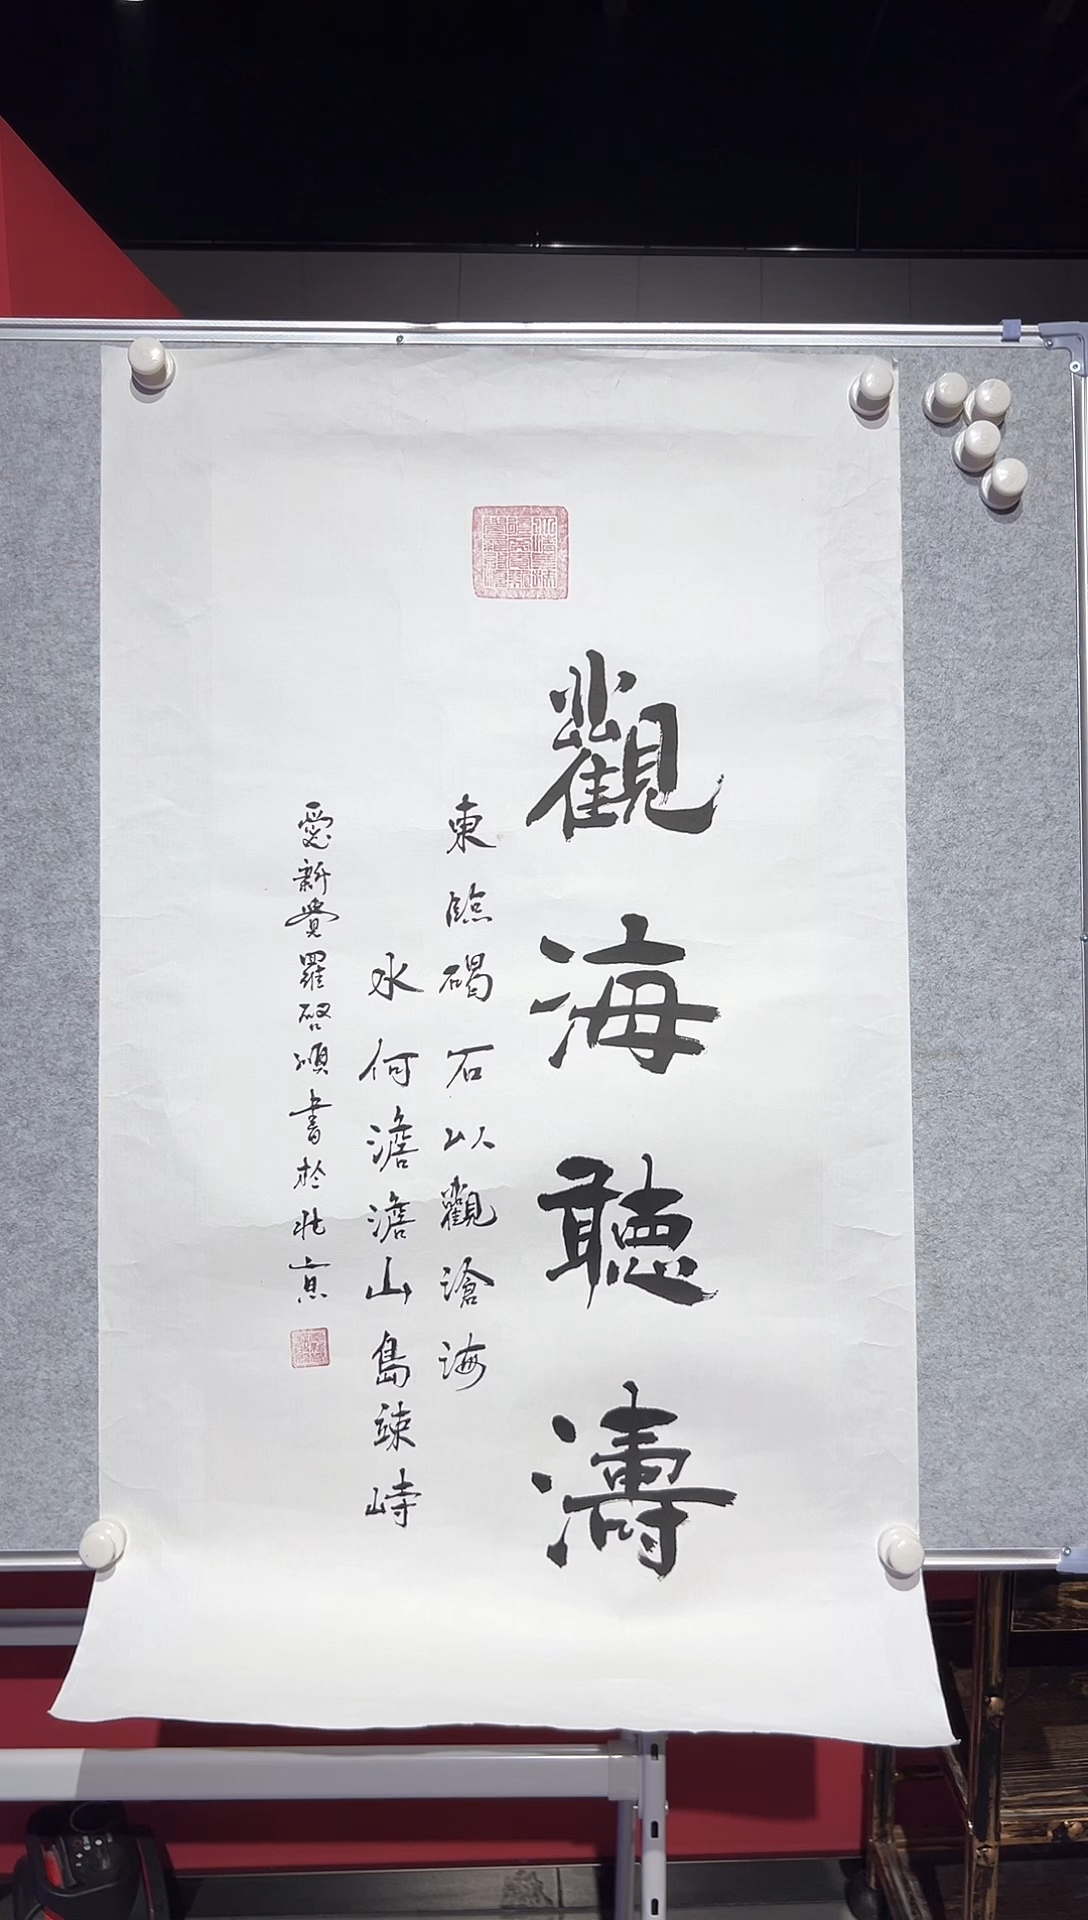 觀海聽濤
東臨碣石以觀滄海
水何澹澹山島竦峙
愛新覺羅啓順書於北京